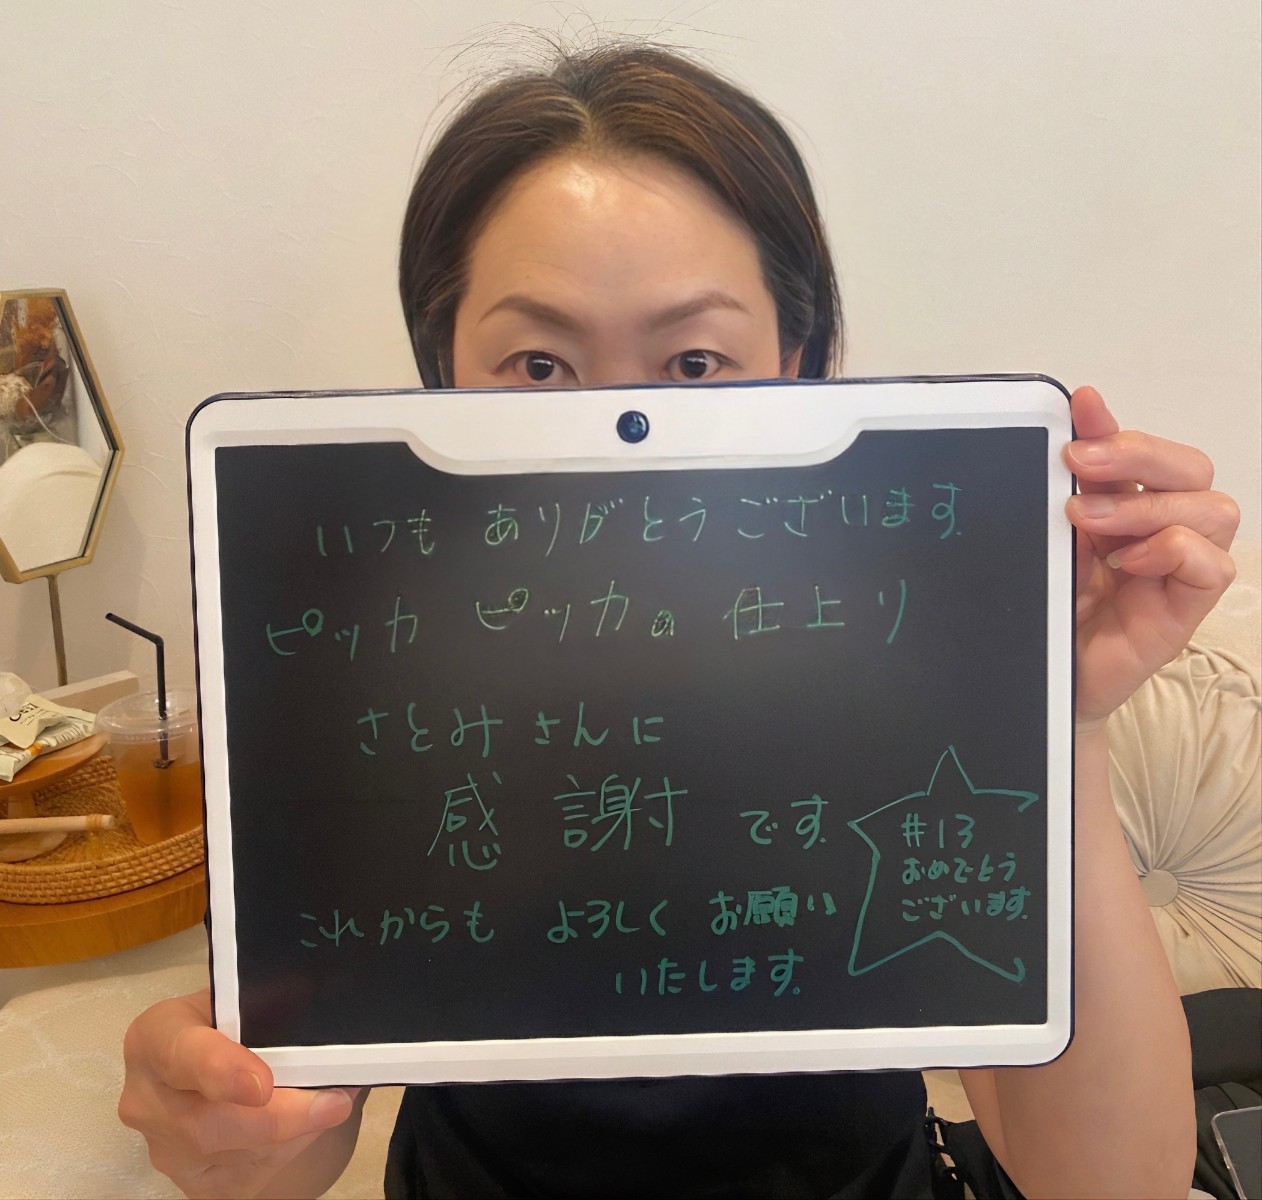 いつも ありがとうございます。
ピッカ ピッカの 仕上り
さとみさんに
感謝です。
これからも よろしく お願い
いたします。
#13
おめでとう
ございます。